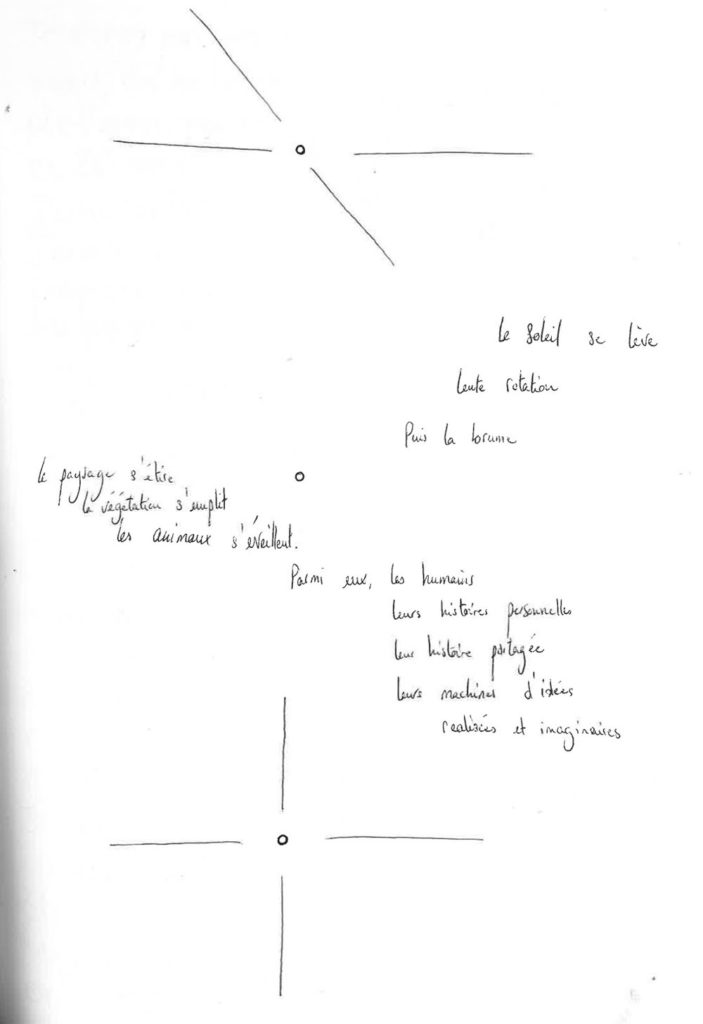 le soleil se lève
lente rotation
Puis la brume
le paysage s'étire
la végétation s'emplit
les animaux s'éveillent.
Parmi eux, les humains
leurs histoires personnelles
leur histoire partagée
leurs machines d'idées
realisées et imaginaires